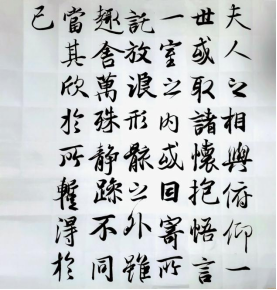 夫人之相與俯仰一
世或取諸懷抱悟言
一室之内或因寄所
託放浪形骸之外雖
趣舍萬殊静躁不同
當其欣於所暫得於
己